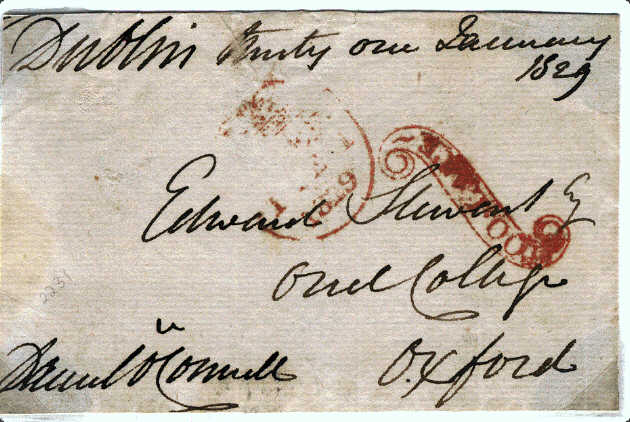 Dublin thirty one January
1829
Edward Stewart Esq
Oriel College
Oxford
Daniel O'Connell
1829
2231